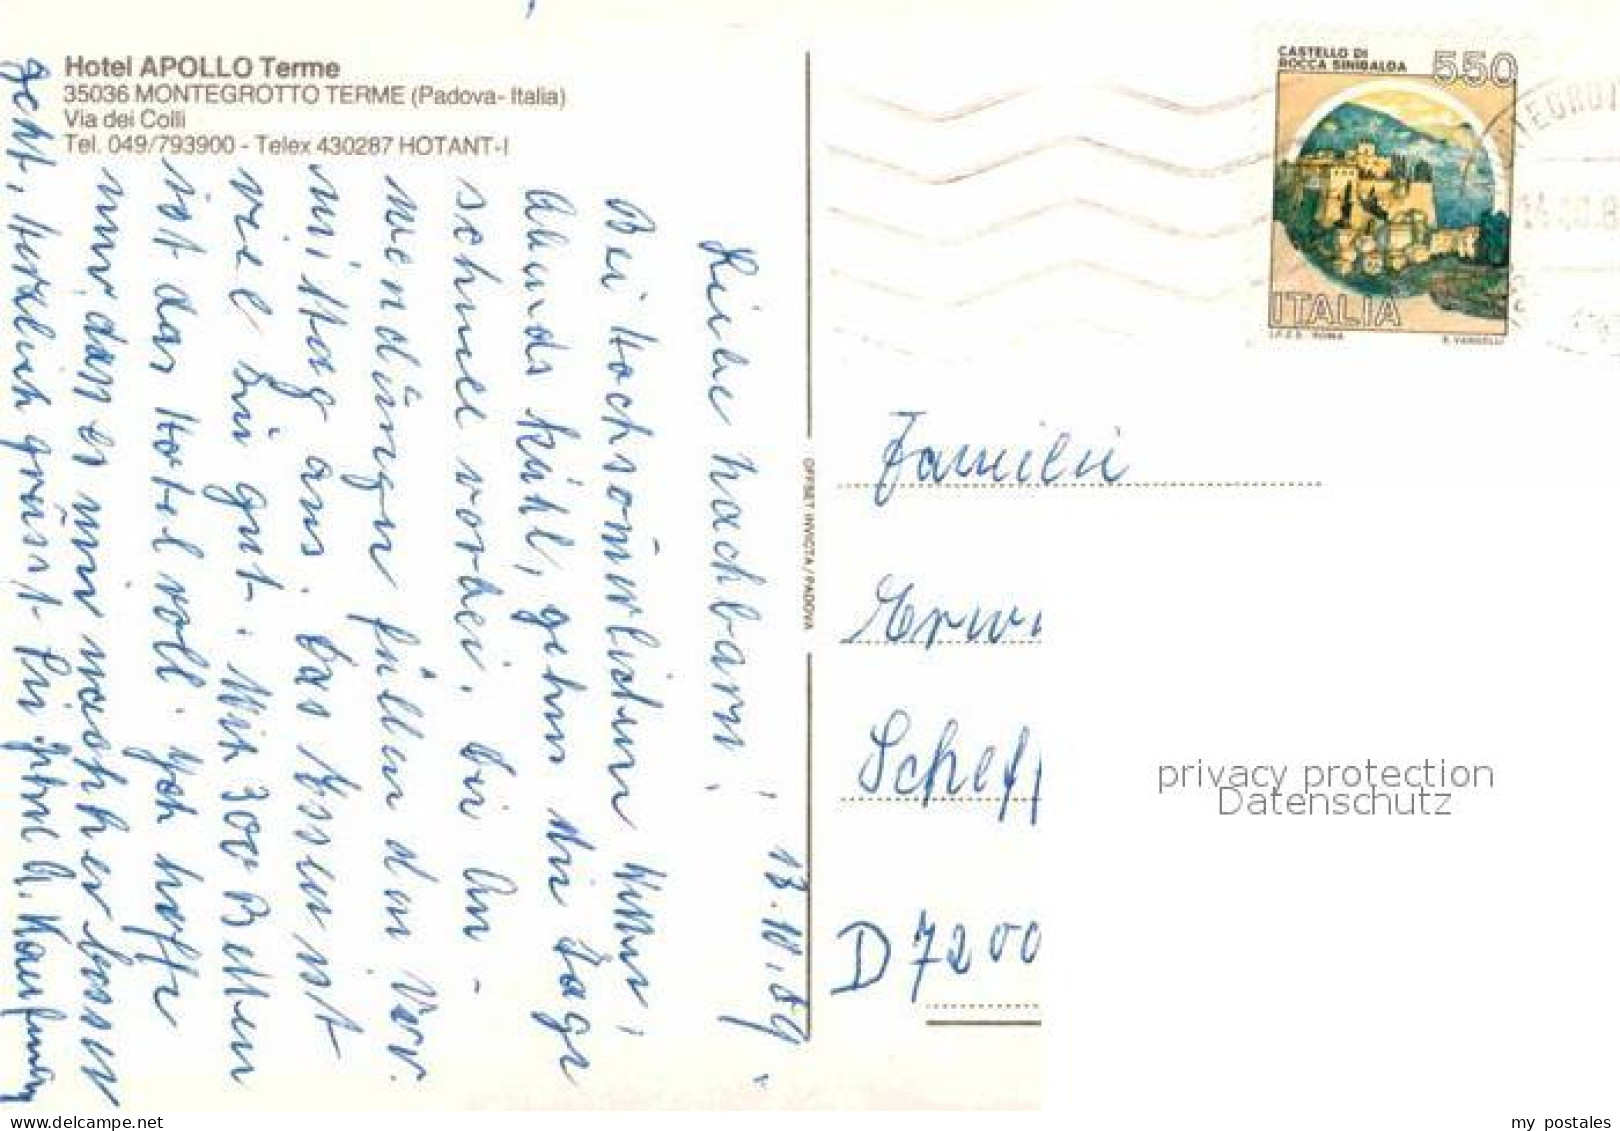 Hotel APOLLO Terme
35036 MONTEGROTTO TERME (Padova-Italia)
Via dei Colli
Tel. 049/793900 - Telex 430287 HOTANT-I
13.10.89
Liebe Nachbarn!
Bei hochsommerlichem Wetter,
Abends kühl, gehen die Tage
schnell vorbei. Die An-
wendungen füllen den Vor-
mittag aus. Das Essen ist
viel zu gut. Mit 300 Betten
ist das Hotel voll. Ich hoffe
nur dass es nun nachher besser
geht, herzlich grüsst
OFFSET INVICTA/PADOVA
CASTELLO DI
ROCCA SINIBALDA
550
ITALIA
I.P.Z.S. ROMA
E. VANGELLI
Familie
Erwi
Scheff
D 7200
privacy protection
Datenschutz
my postales